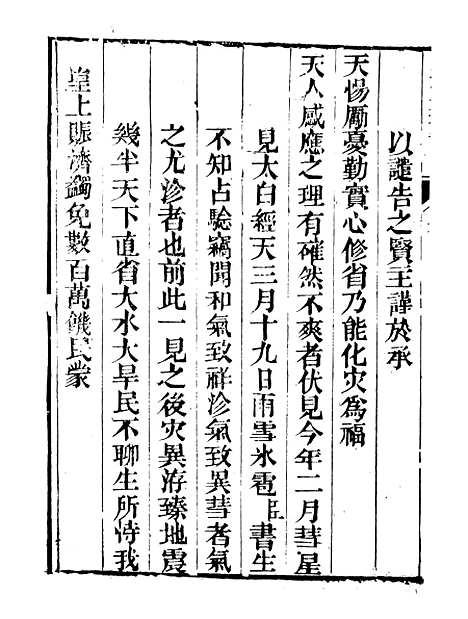 以譴告之賢主謹於承
天惕厲憂勤實心修省乃能化灾為福
天人感應之理有確然不爽者伏見今年二月彗星
見太白經天三月十九日雨雪氷雹臣書生
不知占驗竊聞和氣致祥沴氣致異彗者氣
之尤沴者也前此一見之後灾異洊臻地震
幾半天下直省大水大旱民不聊生所恃我
皇上賑濟蠲免數百萬饑民蒙